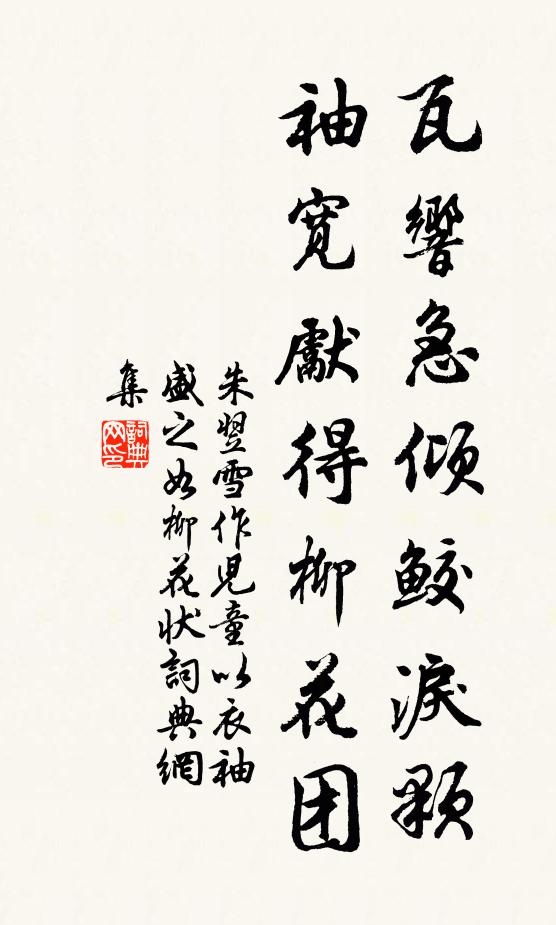 瓦響急傾鮫淚顆
袖寬獻得柳花团
朱翌雪作兒童以衣袖
盛之如柳花状詞典網
集
詞典
网印